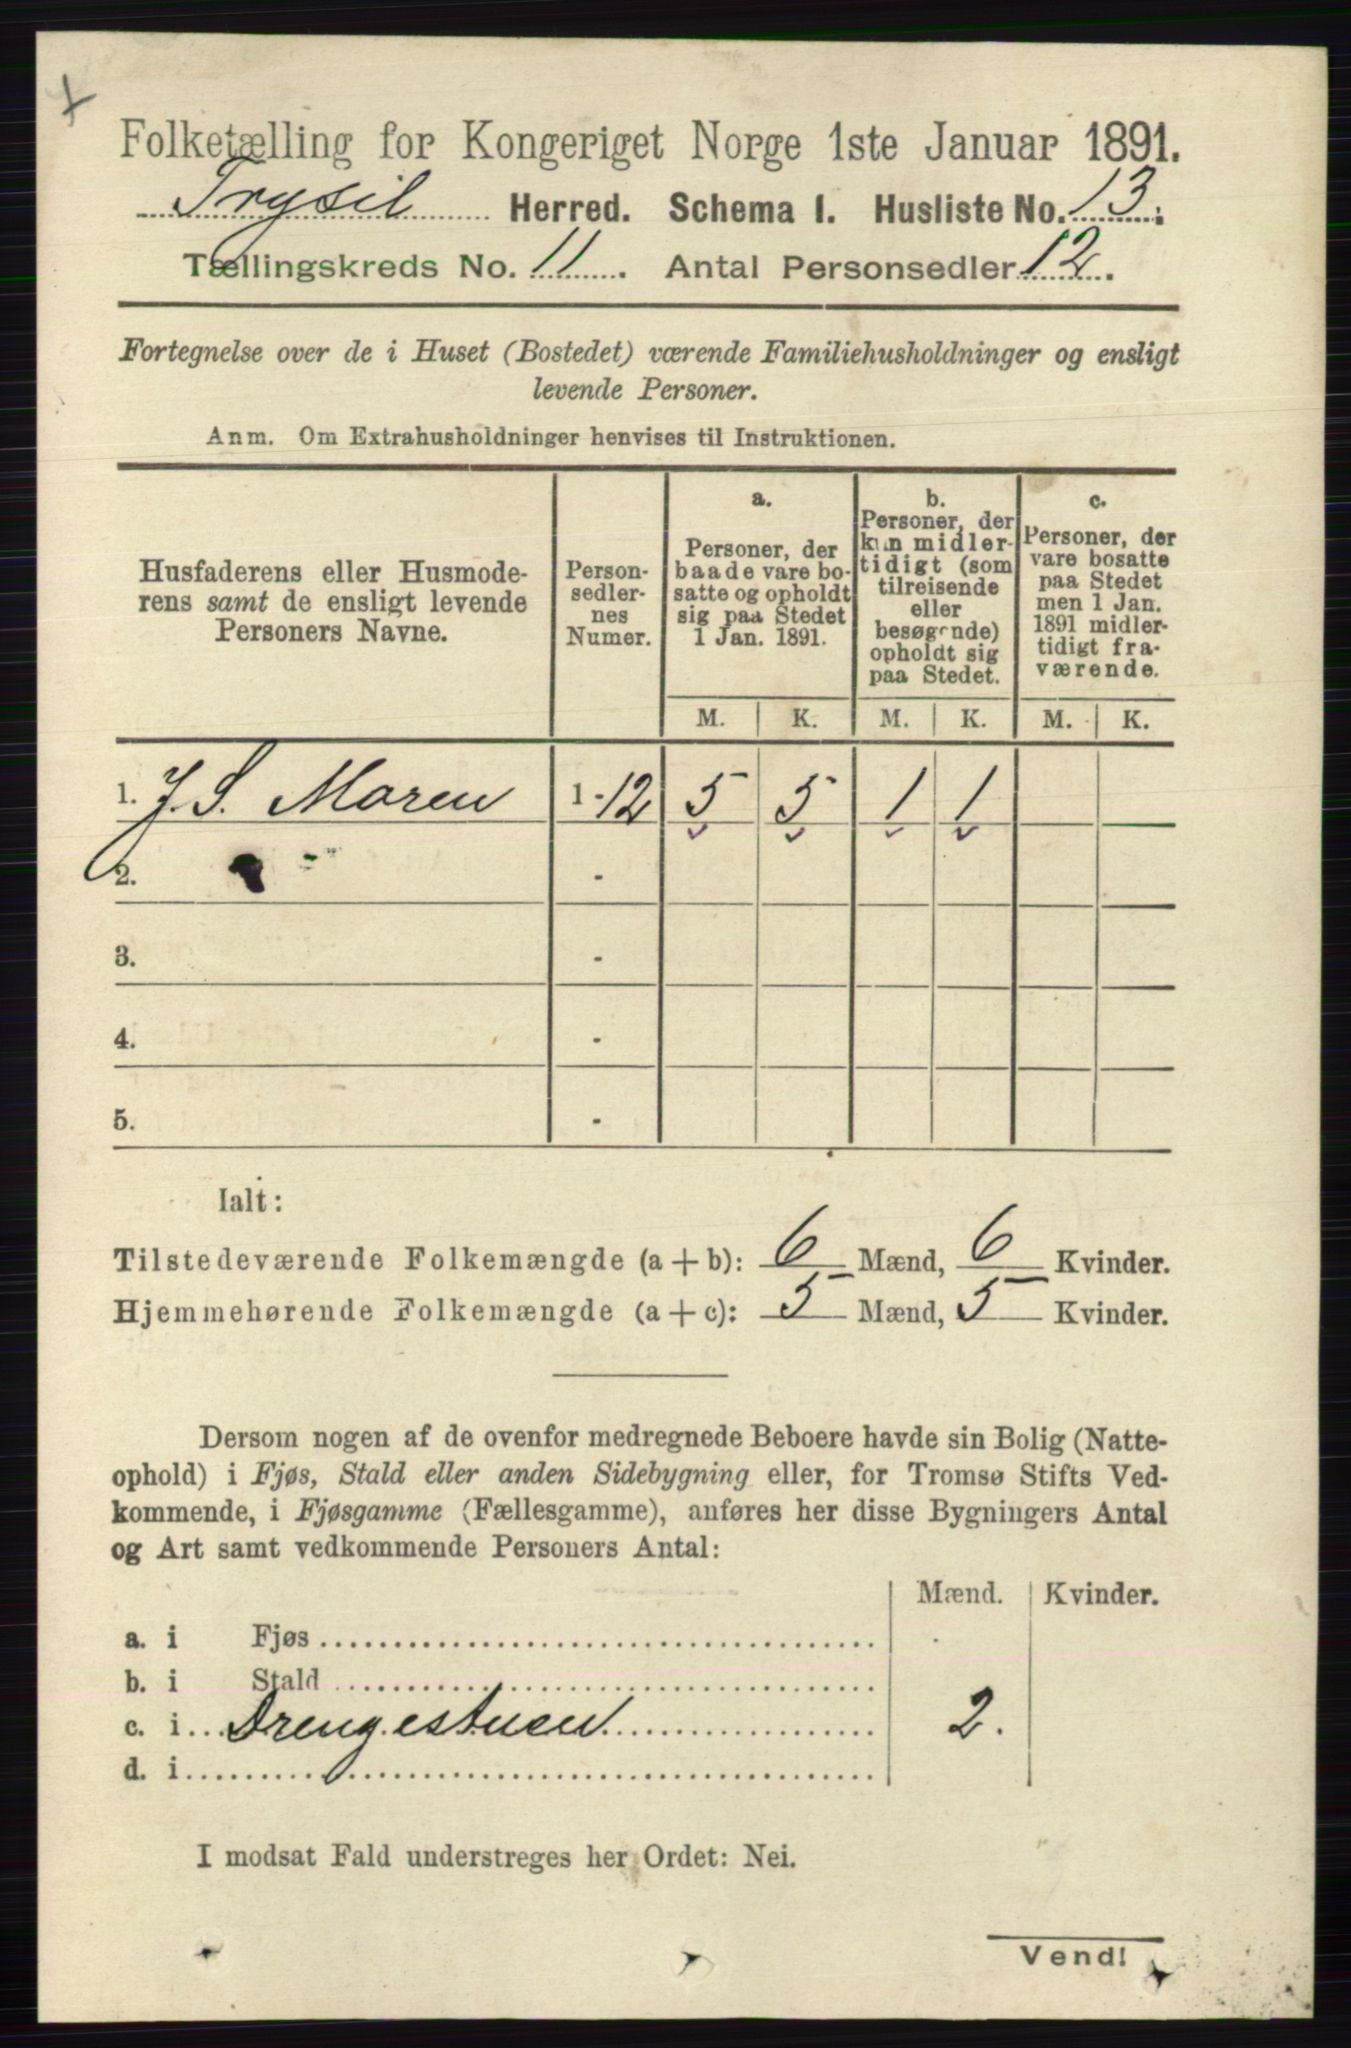 Folketælling for Kongeriget Norge 1ste Januar 1891.
Trysil Herred. Schema I. Husliste No. 13.
Tællingskreds No. 11. Antal Personsedler 12.
Fortegnelse over de i Huset (Bostedet) værende Familiehusholdninger og ensligt
levende Personer.
Anm. Om Extrahusholdninger henvises til Instruktionen.
Husfaderens eller Husmode-
rens samt de ensligt levende
Personers Navne.
Person-
sedler-
nes
Numer.
a.
Personer, der
baade vare bo-
satte og opholdt
sig paa Stedet
1 Jan. 1891.
b.
Personer, der
kun midler-
tidigt (som
tilreisende
eller
besøgende)
opholdt sig
paa Stedet.
c.
Personer, der
vare bosatte
paa Stedet
men 1 Jan.
1891 midler-
tidigt fra-
værende.
M. K. M. K. M. K.
1. J. S. Moren 1-12 5 5 1 1
2. -
3. -
4. -
5. -
Ialt:
Tilstedeværende Folkemængde (a + b): 6 Mænd, 6 Kvinder.
Hjemmehørende Folkemængde (a + c): 5 Mænd, 5 Kvinder.
Dersom nogen af de ovenfor medregnede Beboere havde sin Bolig (Natte-
ophold) i Fjøs, Stald eller anden Sidebygning eller, for Tromsø Stifts Ved-
kommende, i Fjøsgamme (Fællesgamme), anføres her disse Bygningers Antal
og Art samt vedkommende Personers Antal:
Mænd. Kvinder.
a. i Fjøs
b. i Stald
c. i Drengestuen 2.
d. i
I modsat Fald understreges her Ordet: Nei.
Vend!